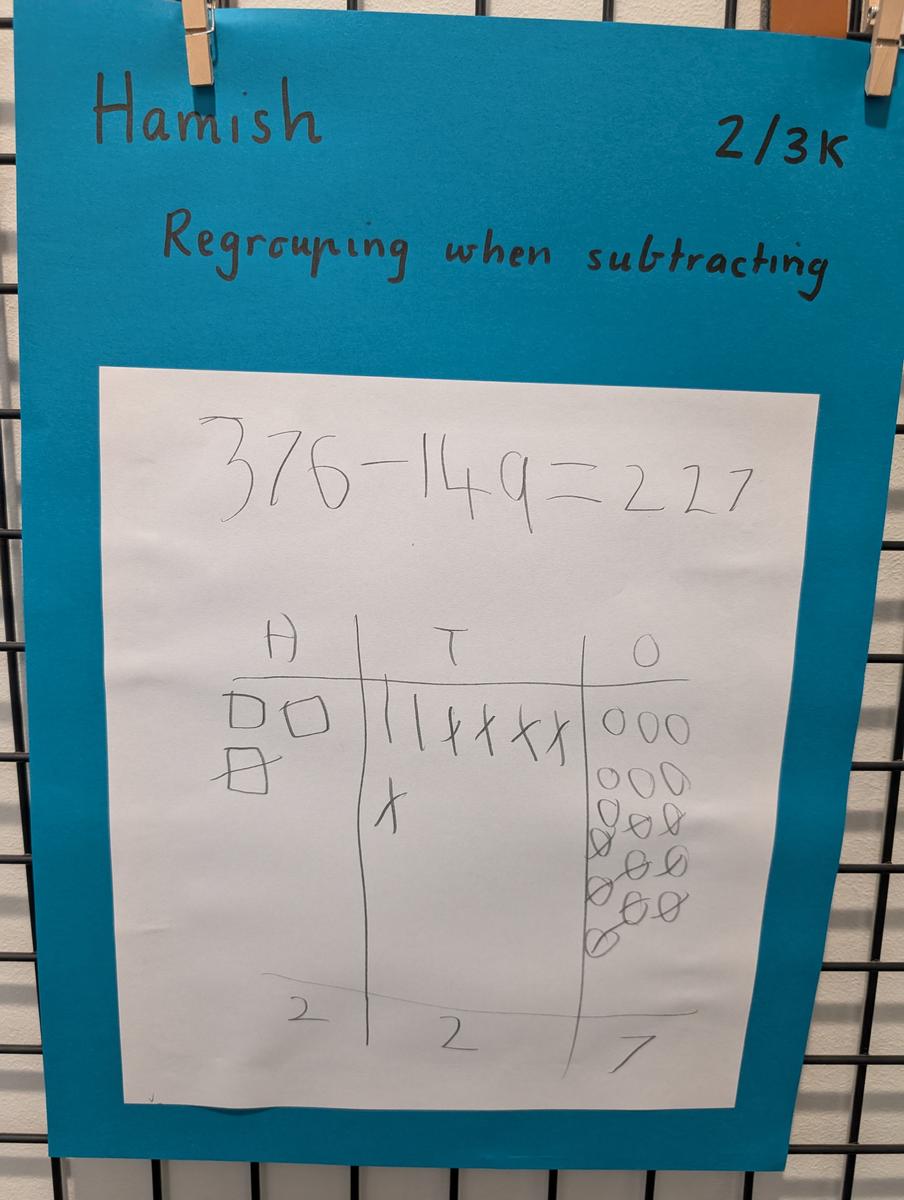 Hamish 2/3K
Regrouping when subtracting
376-149=227
H T O
2 2 7